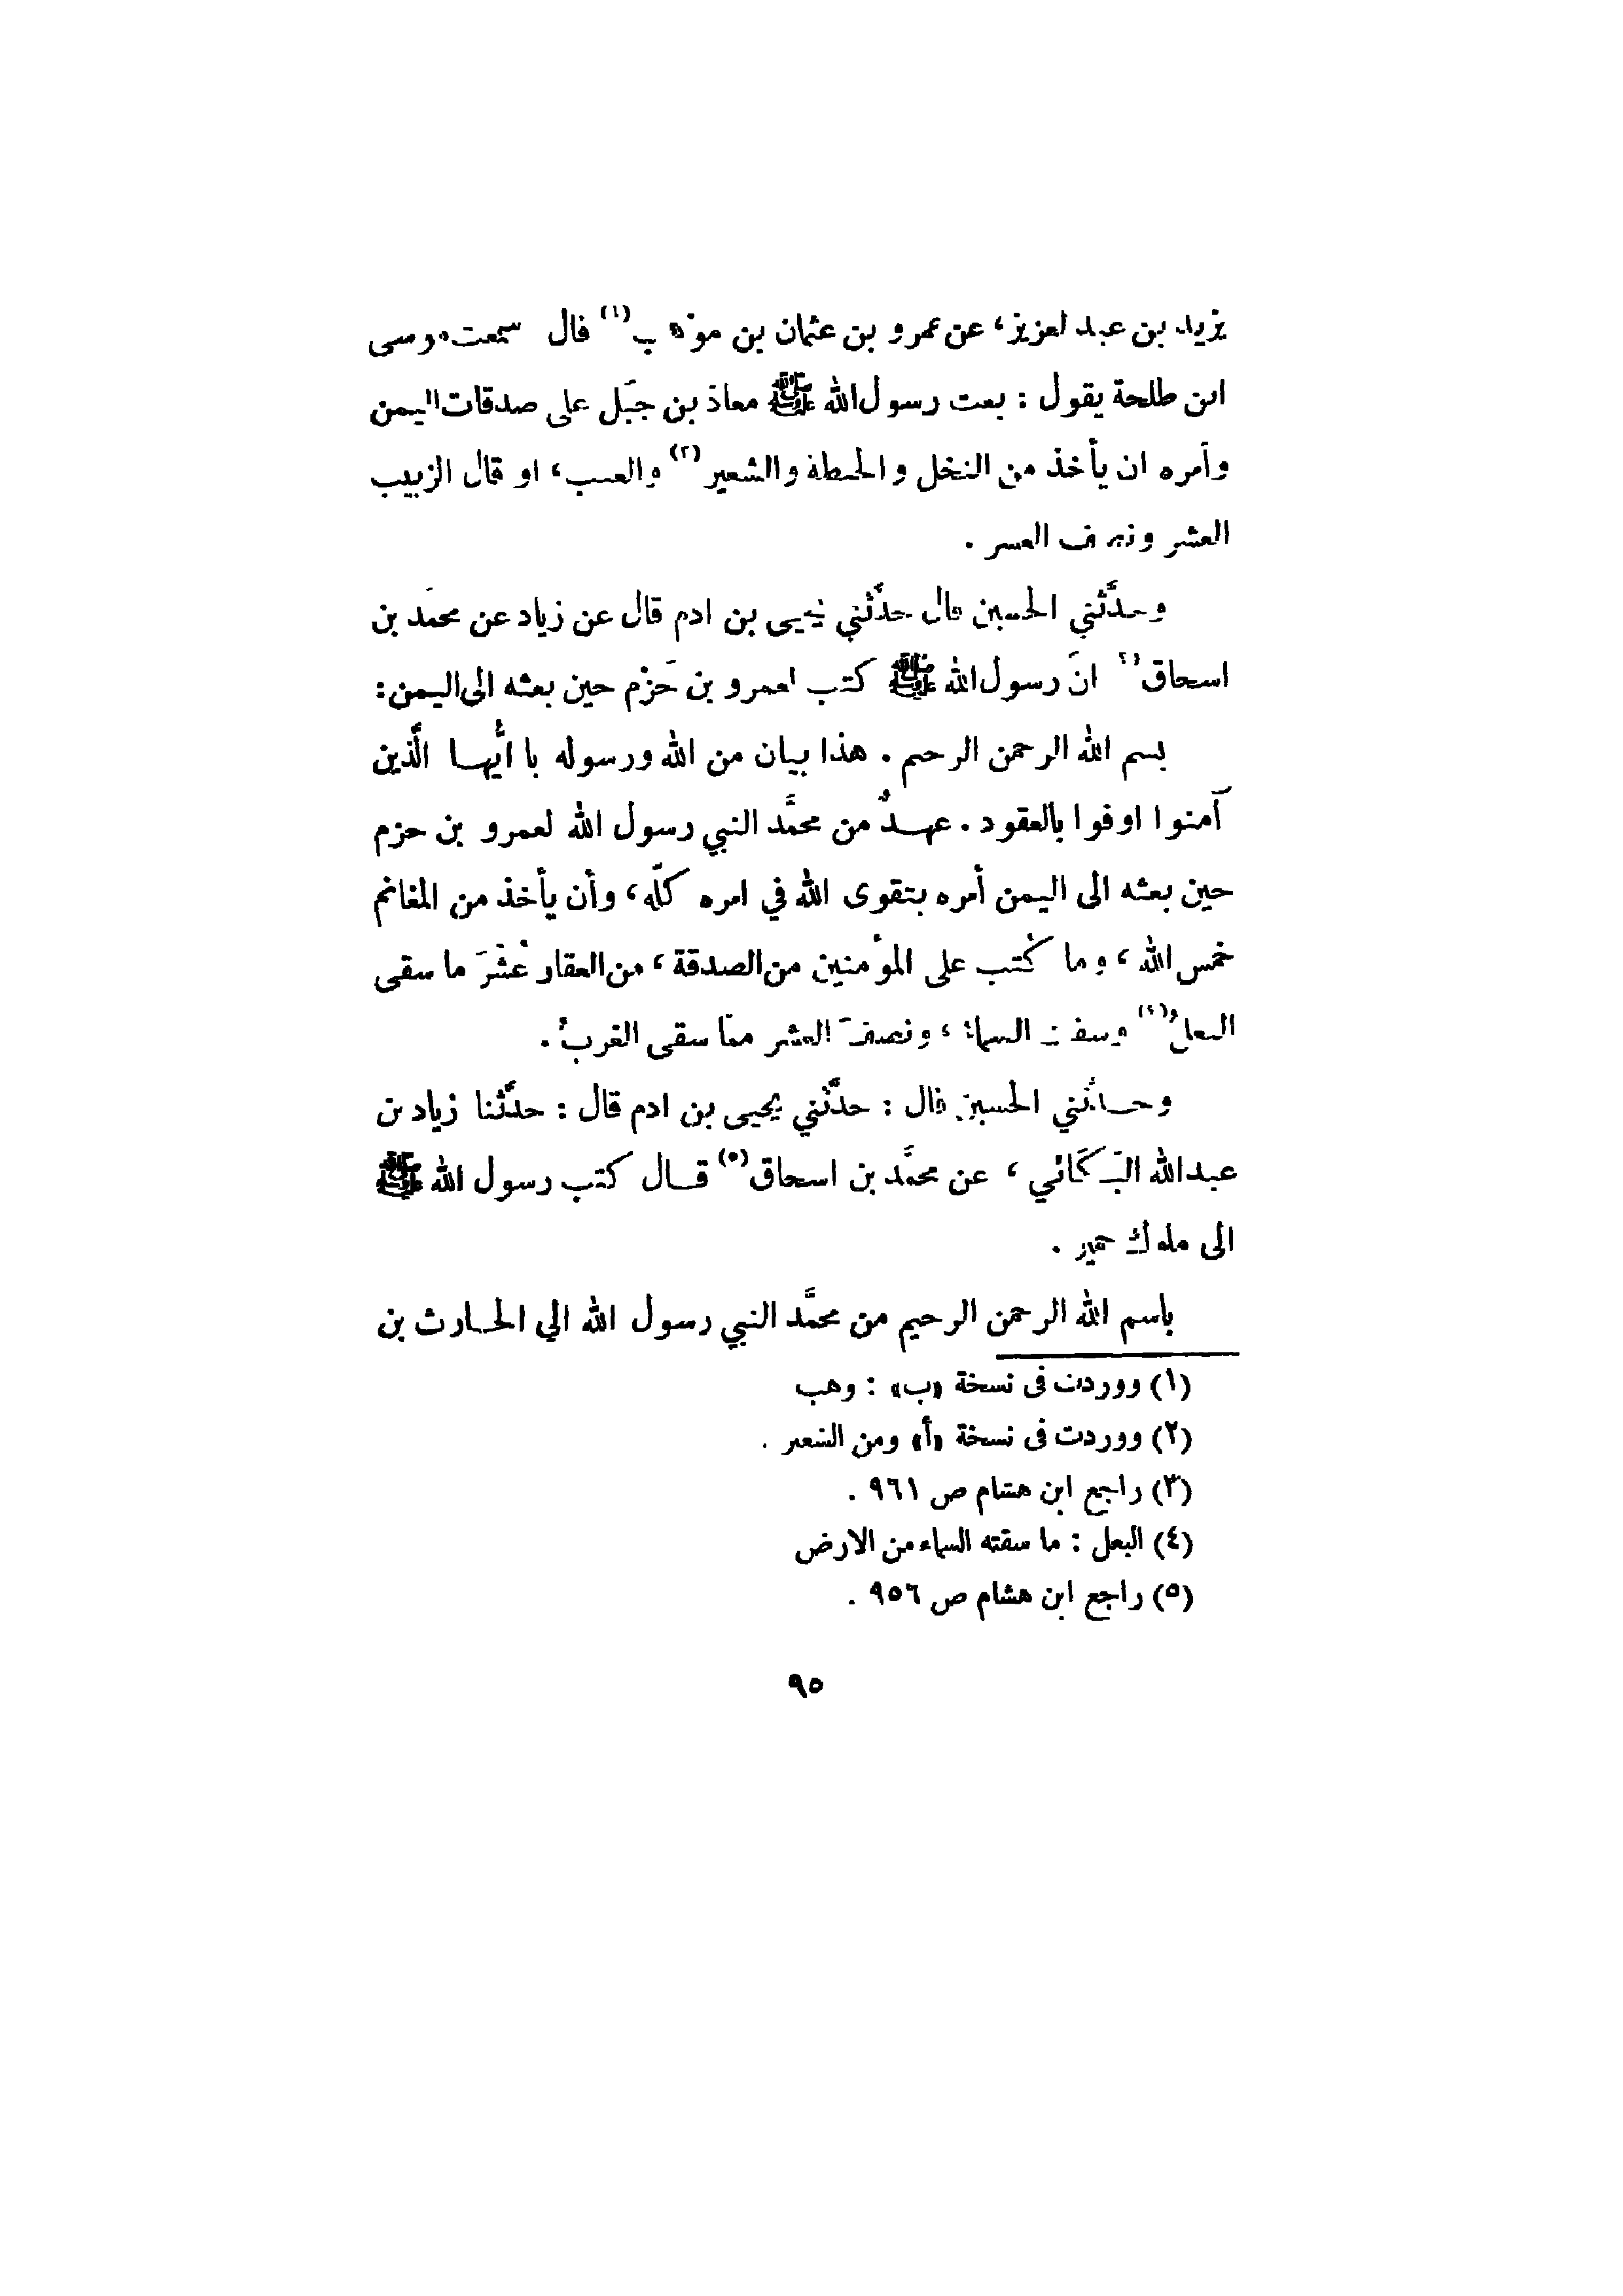 يزيد بن عبد العزيز، عن عمرو بن عثمان بن موهب (١) قال سمعت موسى
ابن طلحة يقول : بعث رسول الله ﷺ معاذ بن جبَل على صدقات اليمن
وأمره ان يأخذ من النخل والحنطة والشعير (٢) والعنب، او قال الزبيب
العشر ونصف العشر .
وحدَّثني الحسين قال حدَّثني يحيى بن ادم قال عن زياد عن محمَّد بن
اسحاق (٣) انَ رسول الله ﷺ كتب لعمرو بن حَزْم حين بعثه الى اليمن:
بسم الله الرحمن الرحيم . هذا بيان من الله ورسوله يا ايُّها الَّذين
آمنوا اوفوا بالعقود . عهدٌ من محمَّد النبي رسول الله لعمرو بن حزم
حين بعثه الى اليمن أمره بتقوى الله في امره كلّه، وأن يأخذ من المغانم
خمس الله ، وما كُتب على المؤمنين من الصدقة ، من العقار عُشْرَ ما سقى
البعلُ (٤) وسقت السماءُ ، ونصفَ العشر ممّا سقى الغربُ .
وحدَّثني الحسين قال : حدَّثني يحيى بن ادم قال : حدَّثنا زياد بن
عبدالله البَكَّائي ، عن محمَّد بن اسحاق (٥) قال كتب رسول الله ﷺ
الى ملوك حمير .
باسم الله الرحمن الرحيم من محمَّد النبي رسول الله الي الحارث بن
(١) ووردت فى نسخة «ب» : وهب
(٢) ووردت فى نسخة «أ» ومن الشعير .
(٣) راجع ابن هشام ص ٩٦١ .
(٤) البعل : ما سقته السماء من الارض
(٥) راجع ابن هشام ص ٩٥٦ .
٩٥